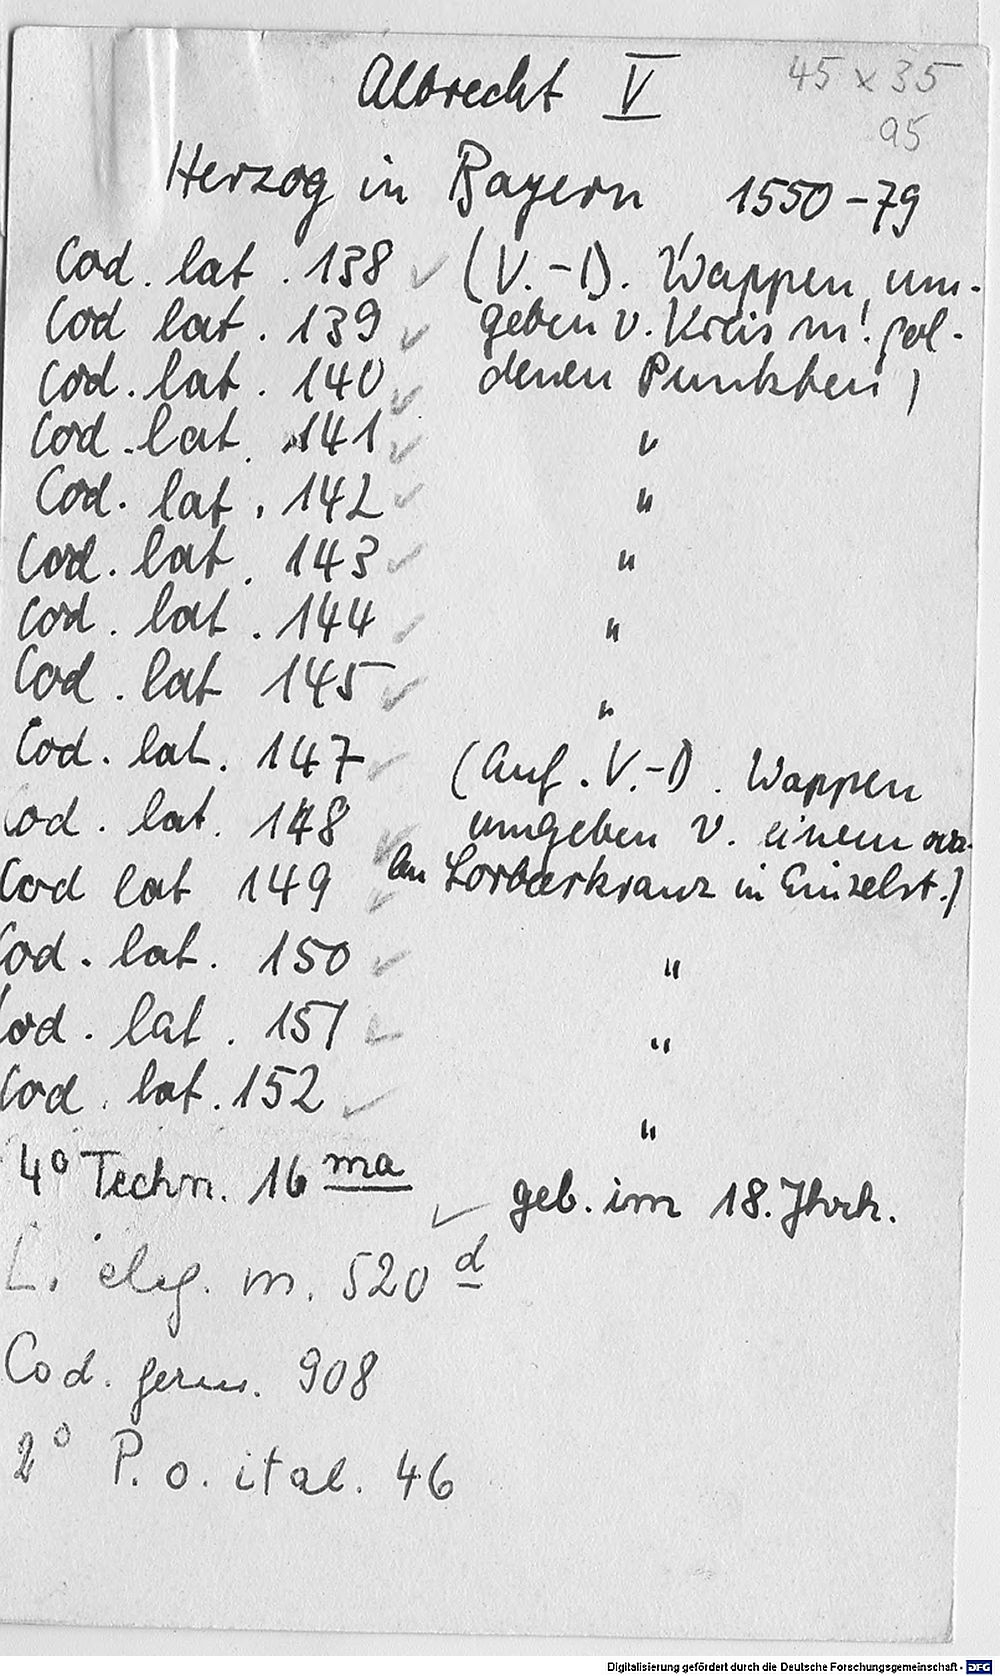 Albrecht V
45 x 35
95
Herzog in Bayern 1550-79
Cod. lat. 138 ✓ (V.-D. Wappen, um-
Cod lat. 139 ✓ geben v. Kreis m! gol-
Cod. lat. 140 ✓ denen Punkten)
Cod. lat. 141 ✓ "
Cod. lat. 142 ✓ "
Cod. lat. 143 ✓ "
Cod. lat. 144 ✓ "
Cod. lat 145 ✓ "
Cod. lat. 147 ✓ (Auf. V.-D. Wappen
Cod. lat. 148 ✓ umgeben v. einem ova-
Cod lat 149 ✓ len Lorbeerkranz in Einzelst.)
Cod. lat. 150 ✓ "
Cod. lat. 151 ✓ "
Cod. lat. 152 ✓ "
4° Techn. 16 ma ✓ geb. im 18. Jhrh.
L. eleg. m. 520 d
Cod. germ. 908
2° P. o. ital. 46
Digitalisierung gefördert durch die Deutsche Forschungsgemeinschaft - DFG